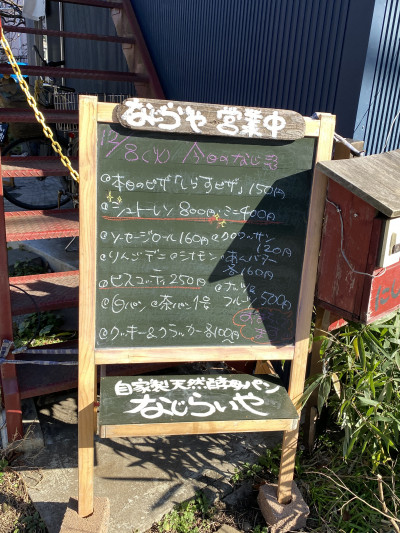 なじらいや 営業中
12/8(火) 今日のなじ説
◎本日のピザ「しらすピザ」150円
◎シュトーレン 800円 ミニ400円
◎ソーセージロール160円 ◎クロワッサン 120円
◎りんごデニ◎シナモン・あんバター 各160円
◎ビスコッティ250円 ◎ナッツ&フルーツ 500円
◎白パン◎茶パン1号
◎クッキー&クラッカー各100円
自家製天然酵母パン
なじらいや